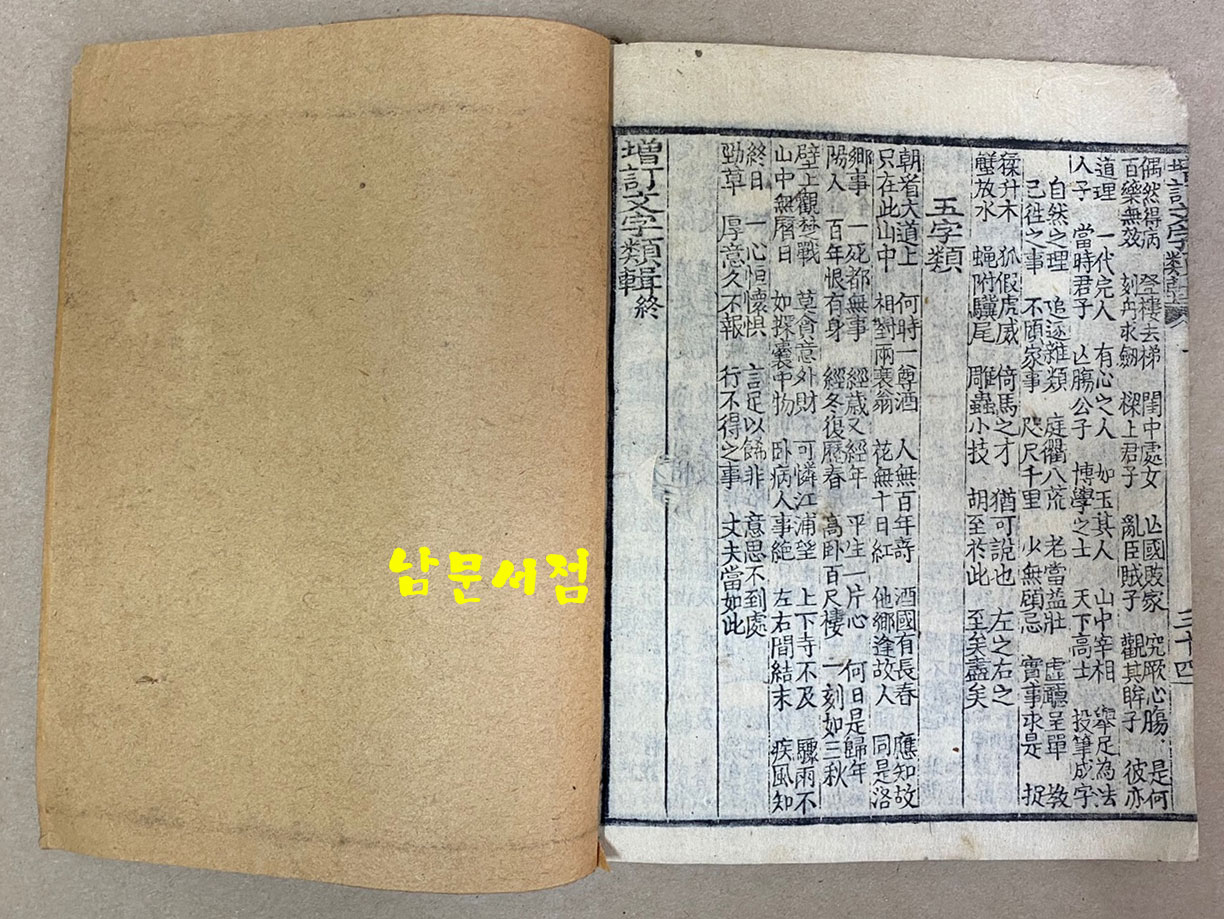 增訂文字類
三十四
偶然得病 登樓去梯 閨中處女 亾國敗家 究厥心腸 是何
百藥無效 刻舟求劒 樑上君子 亂臣賊子 觀其眸子 彼亦
道理 一代完人 有心之人 如玉其人 山中宰相 擧足為法
人子 當時君子 亾腸公子 博學之士 天下高士 投筆成字
自然之理 追逐雜類 庭衢八荒 老當益壯 虛聽呈單 敎
已徃之事 不頋家事 咫尺千里 少無顧忌 實事求是 捉
猱升木 狐假虎威 倚馬之才 猶可説也 左之右之
蟹放水 蝇附驥尾 雕蟲小技 胡至於此 至矣盡矣
五字類
朝者大道上 何時一尊酒 人無百年 酒國有長春 應知故
只在此山中 相對兩衰翁 花無十日紅 他鄉逢故人 同是洛
鄉事 一死都無事 經歲又經年 平生一片心 何日是歸年
陽人 百年恨有身 經冬復歷春 高卧百尺樓 一刻如三秋
壁上觀楚戰 莫貪意外財 可憐江浦望 上下寺不及 驟雨不
山中無曆日 如探囊中物 卧病人事絶 左右間結末 疾風知
終日 一心恒懷惧 言足以餙非 意思不到處
勁草 厚意久不報 行不得之事 丈夫當如此
增訂文字類輯終
남문서점